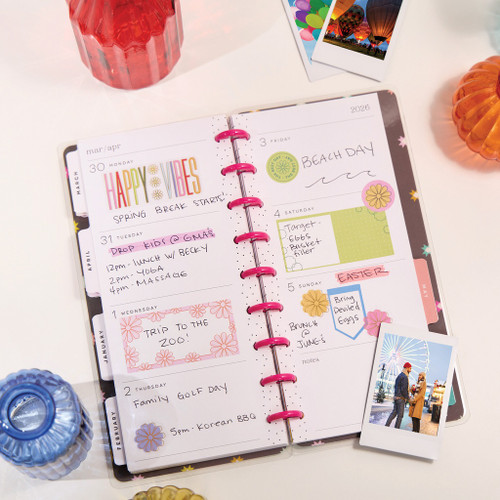 mar/apr
30 MONDAY
HAPPY VIBES
SPRING BREAK STARTS!
31 TUESDAY
DROP KIDS @ GMA'S
12pm - LUNCH W/ BECKY
2pm - YOGA
4pm - MASSAGE
1 WEDNESDAY
TRIP TO THE
ZOO!
2 THURSDAY
Family GOLF DAY
5pm - Korean BBQ
2026
3 FRIDAY
BEACH DAY
4 SATURDAY
Target
Eggs
Basket
filler
5 SUNDAY
EASTER
BRUNCH
@
JUNG'S
Bring
Deviled
Eggs
MARCH
APRIL
JANUARY
FEBRUARY